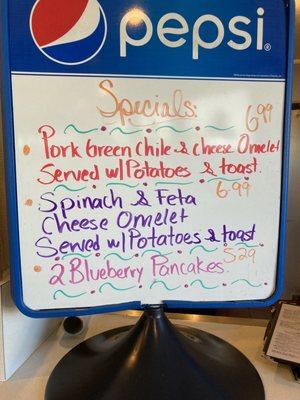 pepsi®
Specials:
6.99
Pork Green Chile & Cheese Omelet
Served w/Potatoes & toast.
6.99
Spinach & Feta
Cheese Omelet
Served w/Potatoes & toast
2 Blueberry Pancakes. 5.29